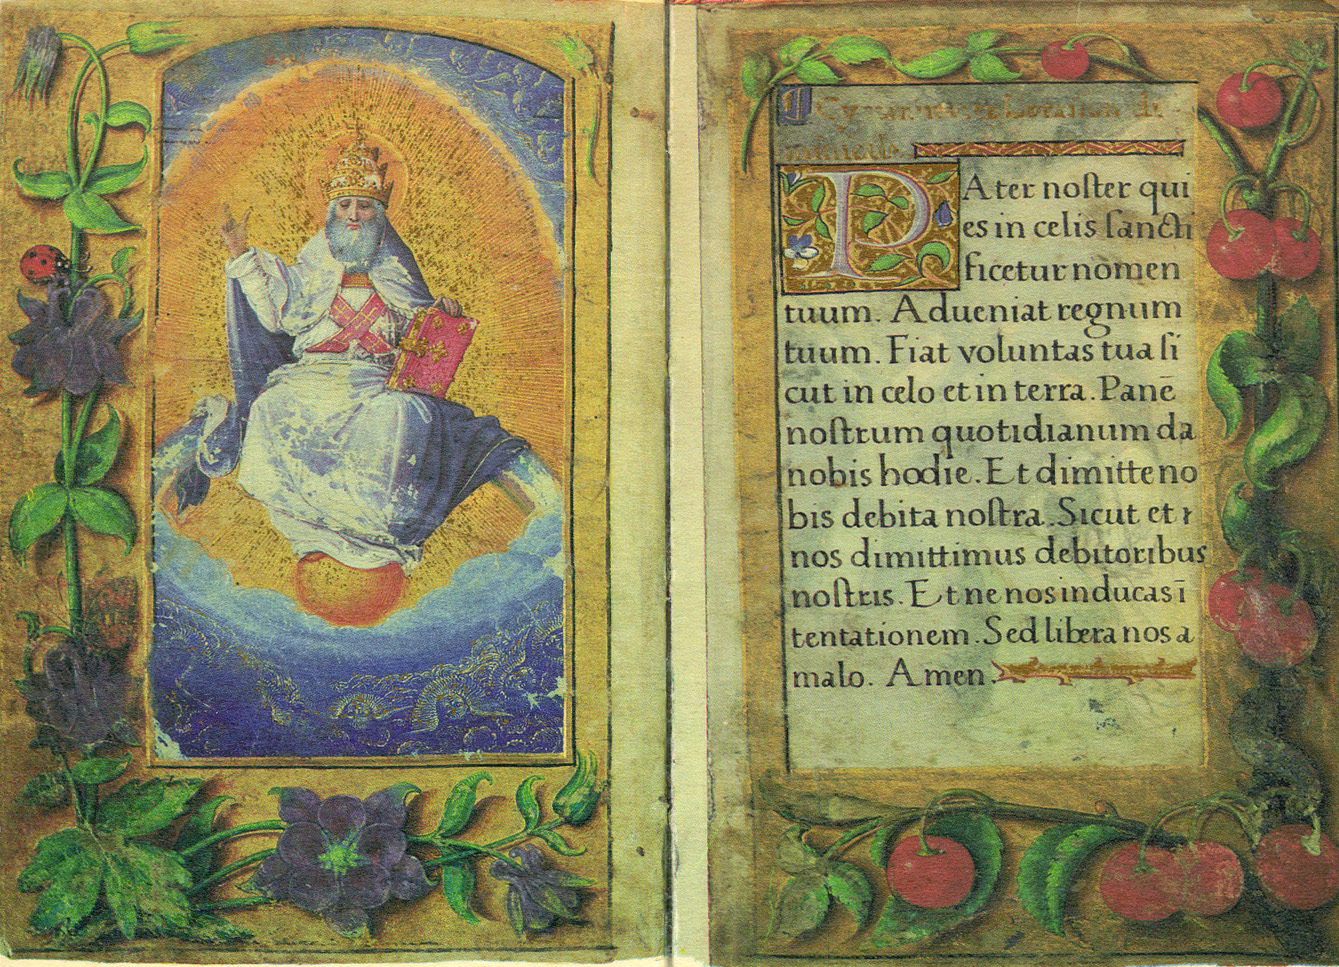 Cy loraison
PAter noſter qui
es in celis ſancti
ficetur nomen
tuum. Adueniat regnum
tuum. Fiat voluntas tua ſi
cut in celo et in terra. Panē
noſtrum quotidianum da
nobis hodie. Et dimitte no
bis debita noſtra. Sicut et
nos dimittimus debitoribus
noſtris. Et ne nos inducas ī
tentationem. Sed libera nos a
malo. Amen.